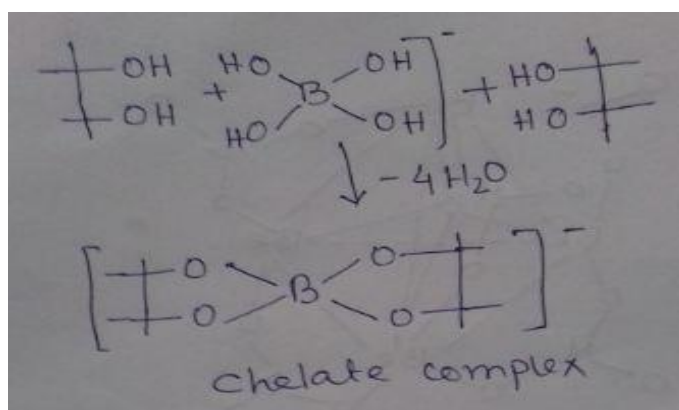 OH HO OH ]⁻ HO
+ B +
OH HO OH HO
- 4H₂O
[ O O ]⁻
B
O O
Chelate complex